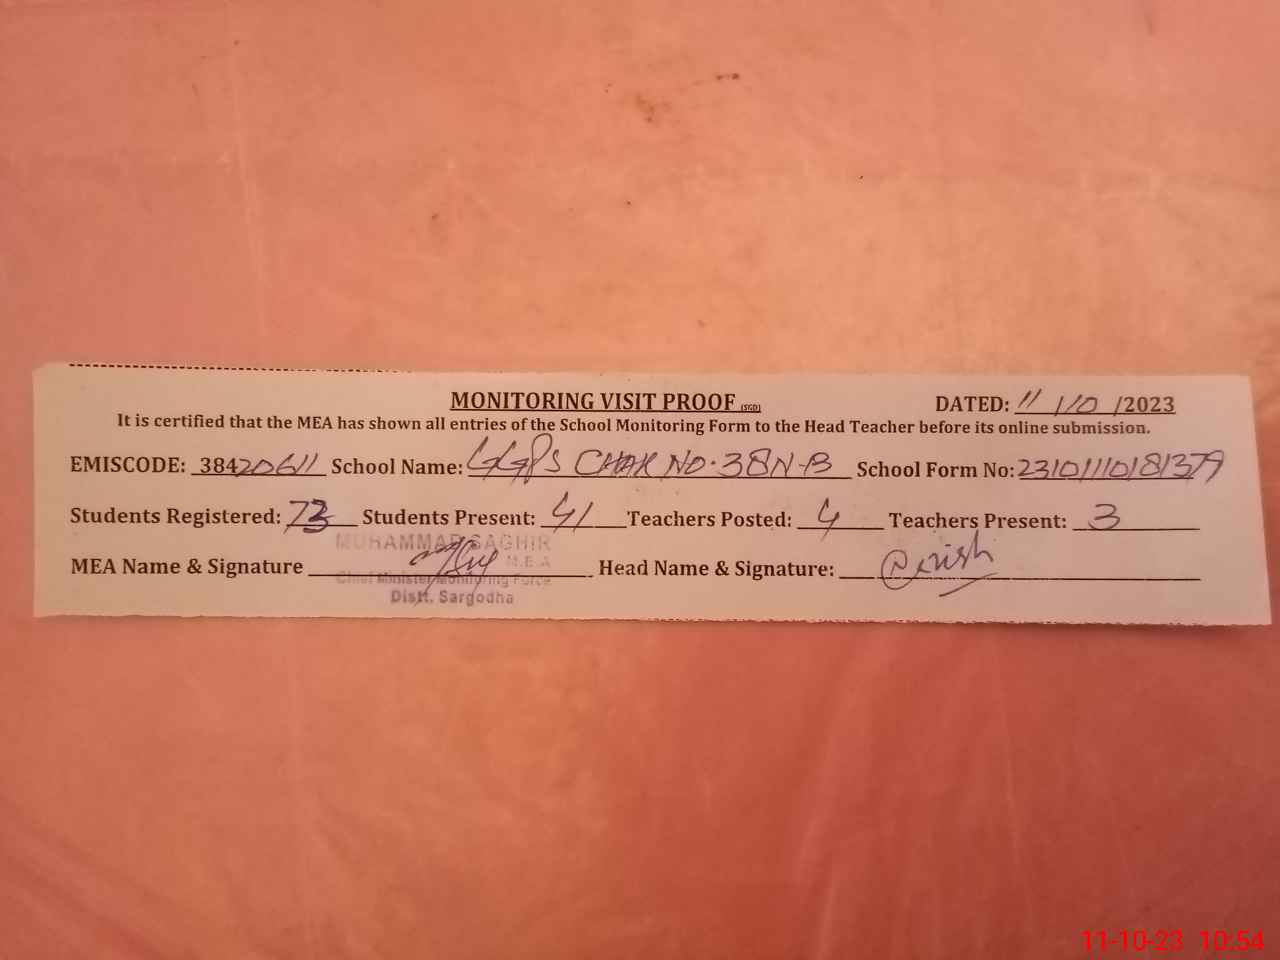 MONITORING VISIT PROOF (SGD) DATED: 11/10/2023
It is certified that the MEA has shown all entries of the School Monitoring Form to the Head Teacher before its online submission.
EMISCODE: 38420611 School Name: GGPS CHAK NO.38N-B School Form No: 23101110181379
Students Registered: 73 Students Present: 41 Teachers Posted: 4 Teachers Present: 3
MUHAMMAD SAGHIR
M.E.A
MEA Name & Signature Head Name & Signature:
Chief Minister Monitoring Force
Distt. Sargodha
11-10-23 10:54